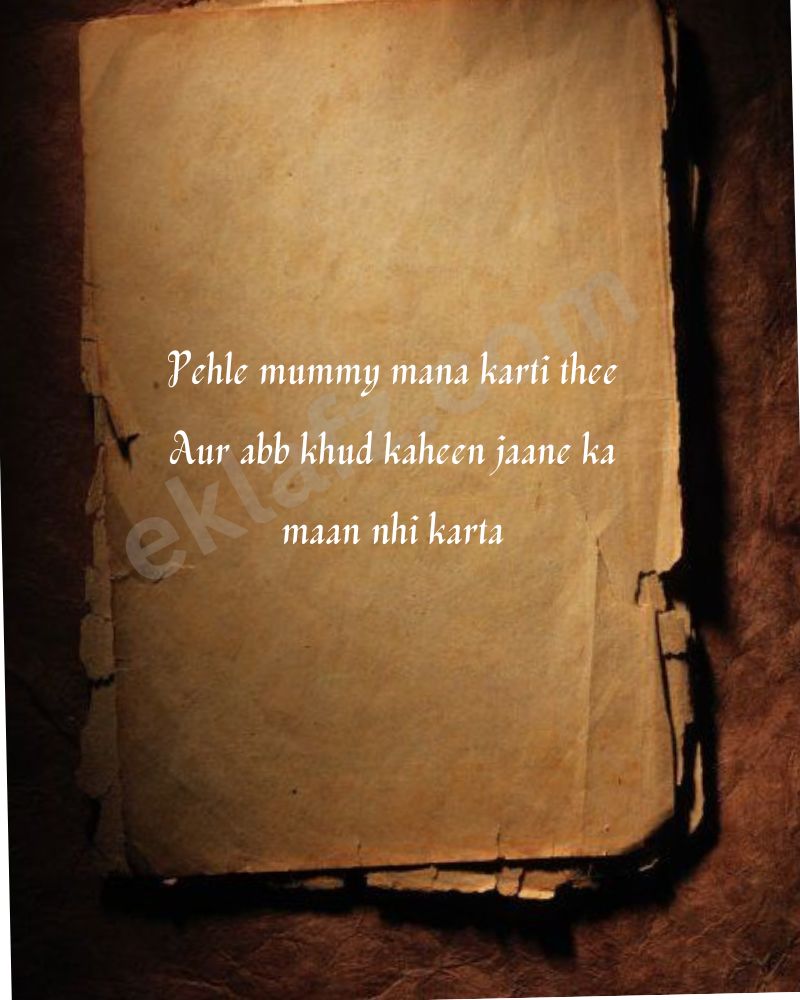 Pehle mummy mana karti thee
Aur abb khud kaheen jaane ka
maan nhi karta
eklafz.com